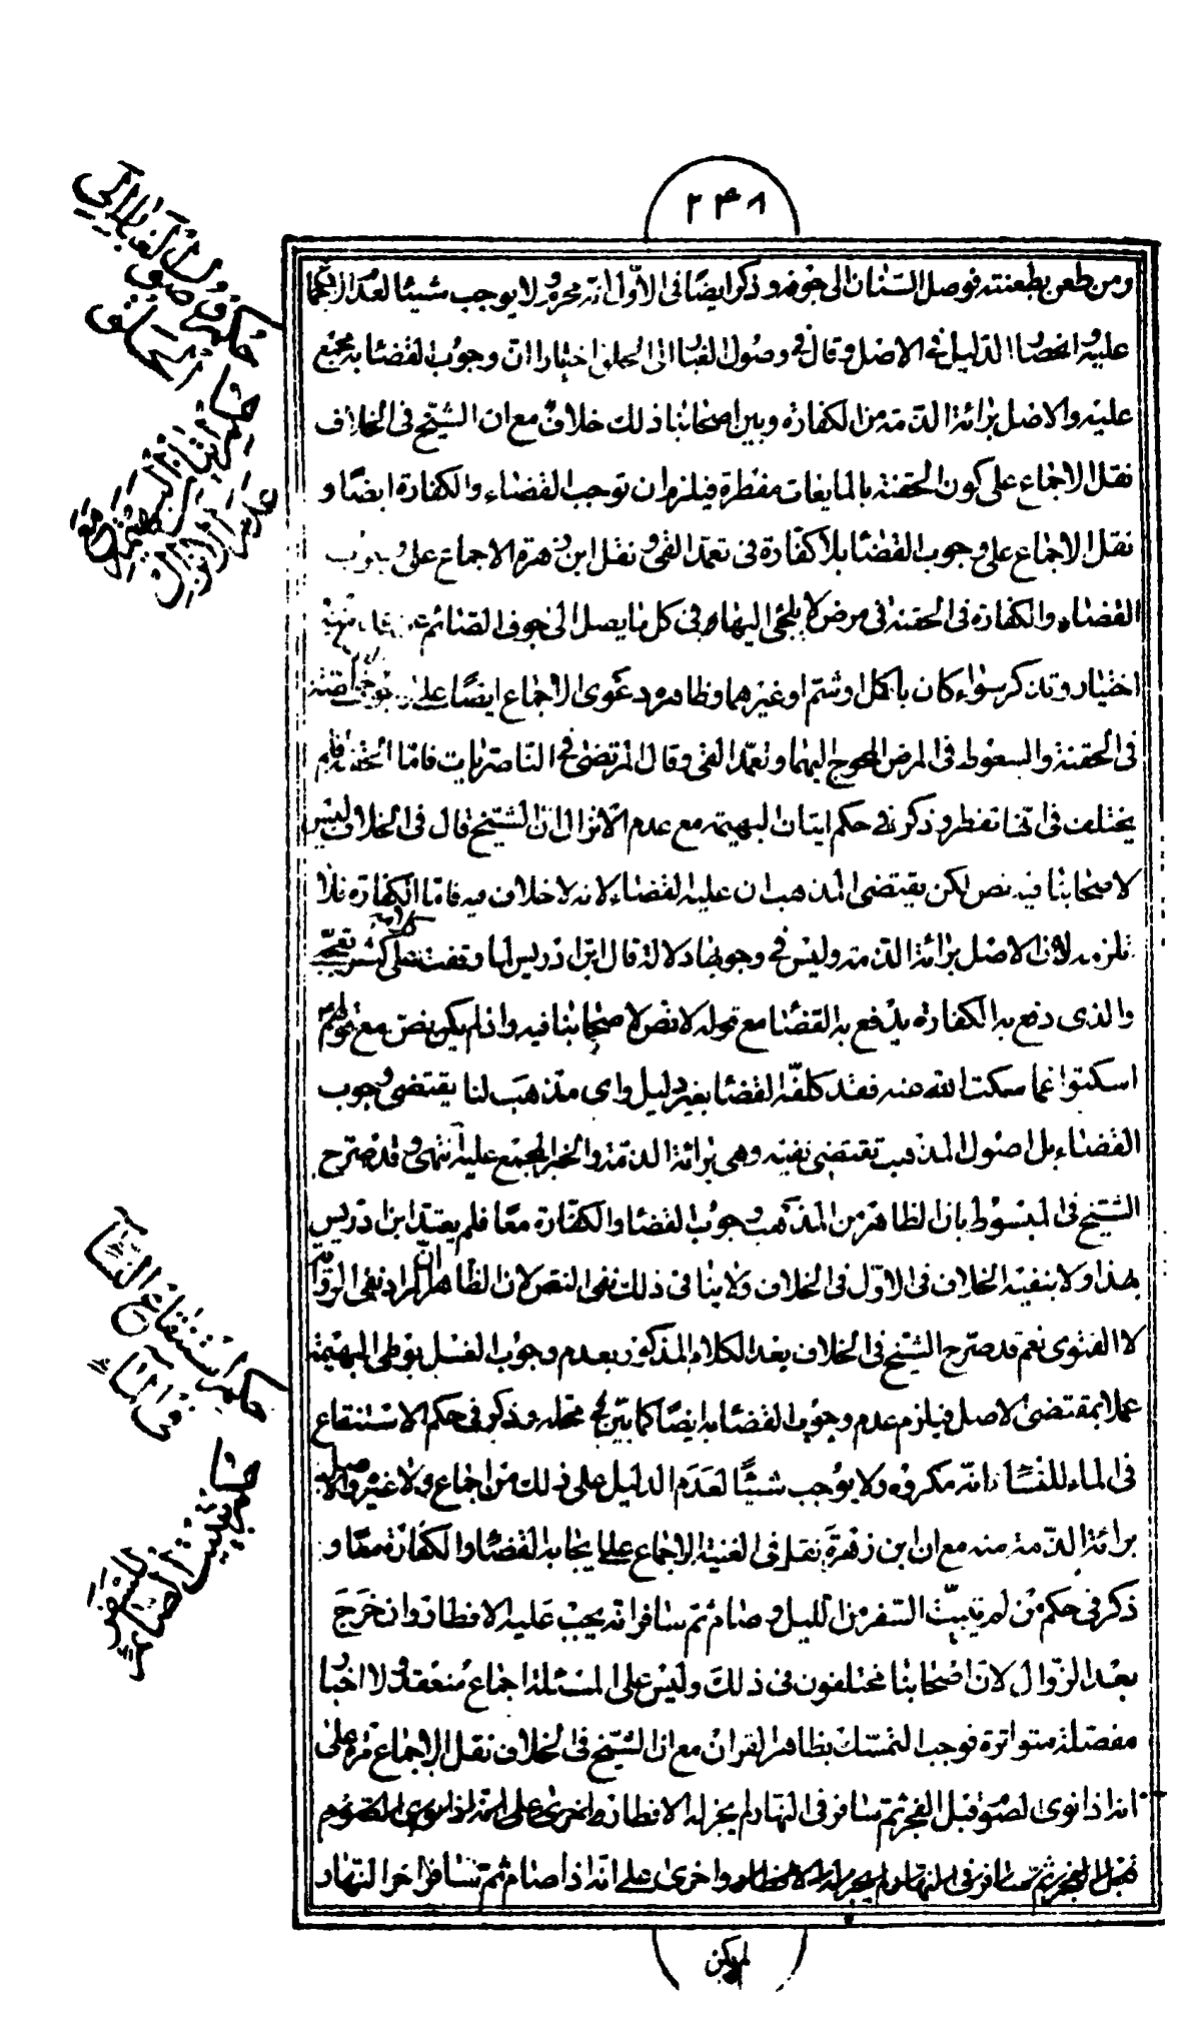 ٢٣٨
ومن طعن بطعنته فوصل السنان الى جوفه وذكر ايضا في الأول انه مجرور لا يوجب شيئا لعدم الاجماع
عليه وانحصار الدليل في الاصل وقال في وصول الغبار الى الحلق اختيارا ان وجوب القضاء به مجمع
عليه والاصل برائة الذمة من الكفارة وبين اصحابنا ذلك خلاف مع ان الشيخ في الخلاف
نقل الاجماع على كون الحقنة بالمايعات مفطرة فيلزم ان توجب القضاء والكفارة ايضا و
نقل الاجماع على وجوب القضاء بلا كفارة في تعمد القي ونقل ابن زهرة الاجماع على وجوب
القضاء والكفارة في الحقنة في مرض لا يلجئ اليها وفي كل ما يصل الى جوف الصائم
اختيار وتذكر سواء كان باكل او شم او غيرهما وظاهره دعوى الاجماع ايضا على
في الحقنة والسعوط في المرض المحوج اليهما وتعمد القي وقال المرتضى في الناصريات فاما الحقنة فلم
يختلف في انها تفطر وذكر في حكم ايتان البهيمة مع عدم الانزال ان الشيخ قال في الخلاف ليس
لاصحابنا فيه نص لكن يقتضى المذهب ان عليه القضاء لانه لا خلاف فيه فاما الكفارة فلا
تلزمه لان الاصل برائة الذمة وليس في وجوبها دلالة قال ابن ادريس لما وقفت على كلامه كثر تعجبي
والذى دفع به الكفارة يدفع به القضاء مع قوله لا نص لاصحابنا فيه واذا لم يكن نص مع قولهم
اسكتوا عما سكت الله عنه فقد كلفه القضاء بغير دليل واى مذهب لنا يقتضى وجوب
القضاء بل اصول المذهب تقتضى نفيه وهى برائة الذمة والخبر المجمع عليه انتهى وقد صرح
الشيخ في المبسوط بان الظاهر من المذهب وجوب القضاء والكفارة معا فلم يعتد ابن ادريس
بهذا ولا بنفيه الخلاف في الاول في الخلاف ولا ينافى ذلك نفى النص لان الظاهر ان المراد نفى الرواية
لا الفتوى نعم قد صرح الشيخ في الخلاف بعد الكلام المذكور بعدم وجوب الغسل بوطى البهيمة
عملا بمقتضى الاصل فيلزم عدم وجوب القضاء به ايضا كما بين في محله وذكر في حكم الاستنقاع
في الماء للنساء انه مكروه ولا يوجب شيئا لعدم الدليل على ذلك من اجماع ولا غيره والاصل
برائة الذمة منه مع ان ابن زهرة نقل في الغنية الاجماع على ايجابه القضاء والكفارة معا و
ذكر في حكم من لم يبيت السفر من الليل وصام ثم سافر انه يجب عليه الافطار وان خرج
بعد الزوال لان اصحابنا مختلفون في ذلك وليس على المسئلة اجماع منعقد ولا اخبار
مفصلة متواترة فوجب التمسك بظاهر القران مع ان الشيخ في الخلاف نقل الاجماع مرة على
انه اذا نوى الصوم قبل الفجر ثم سافر في النهار لم يجز له الافطار واخرى على انه اذا نوى الصوم
قبل الفجر ثم سافر في النهار لم يجز له الافطار واخرى على انه اذا صام ثم سافر اخر النهار
لم يكن
حكم وصول الغبار الى
الحلق
حكم استنقاع النساء
في الماء